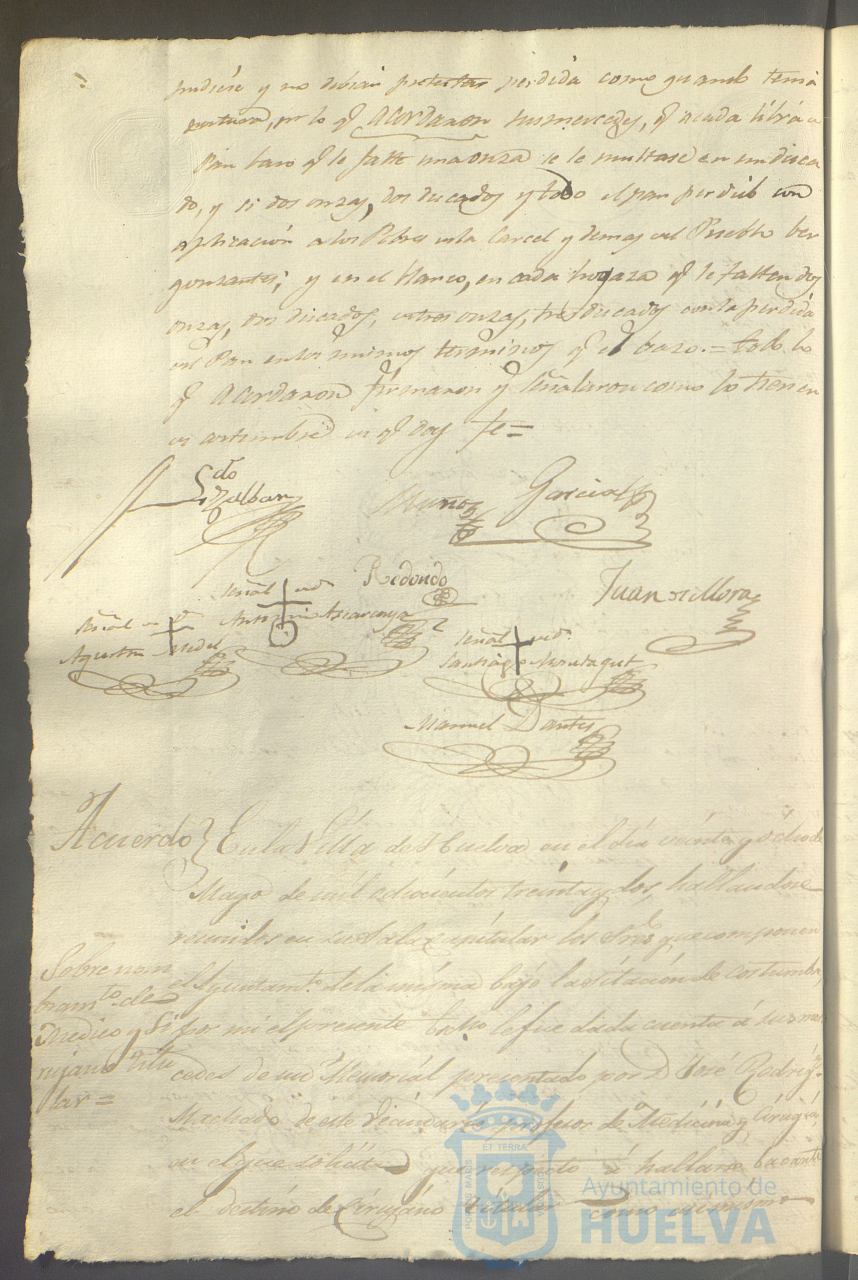 pudiese y no debian pretestar perdida como quando tenia
por lo q.e acordaron sus mercedes, q.e a cada libra de
Pan bazo q.e le falte una onza se le multase en un duca
do, y si dos onzas, dos ducados y todo el pan perdido con
aplicación a los Pobres en la Carcel y demas del Pueblo ber
gonzantes; y en el blanco, en cada hogaza q.e le falten dos
onzas, dos ducados, tres onzas, tres ducados con la perdida
del Pan en los mismos terminos q.e el bazo. = todo lo
q.e acordaron firmaron y señalaron como lo tienen
de costumbre de q.e doy fe =
Muñoz
Garcia
Redondo
Señal de
Antonio
Juan de Mora
Señal de
Agustin
Señal de
Santiago
Manuel Dantes
Acuerdo
En la Villa de Huelva en el dia veinte y ocho de
Mayo de mil ochocientos treinta y dos, hallandose
reunidos en su Sala Capitular los Sres que componen
Sobre nom
bramto de
Medico y Ci
rujano titu
lar =
el Ayuntamto de la misma bajo la sitación de costumbre
por mi el presente le fue dada cuenta á sus mer
cedes de un Memorial presentado por D José Rodrigz
Machado de este Vecindario Profesor de Medicina y Cirugia,
en el que solicita que respecto á hallarse bacante
el destino de Cirujano titular
ET TERRA
PORTUS MARIS
Ayuntamiento de
HUELVA